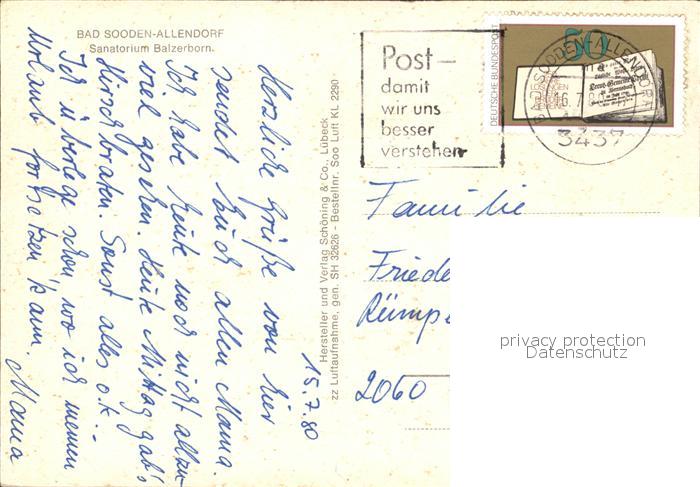 BAD SOODEN-ALLENDORF
Sanatorium Balzerborn.
15.7.80
Herzliche Grüße von hier
sendet Euch allen Mama.
Ich habe heute noch nicht allzu-
viel gesehen. Heute Mittag gab's
Hirschbraten. Sonst alles o.k.
Ich überlege schon, wo ich meinen
Urlaub fortsetzen kann.
Mama
Hersteller und Verlag Schöning & Co., Lübeck
zz Luftaufnahme, gen. SH 32626 - Bestellnr. Soo Luft KL 2290
Post-
damit
wir uns
besser
verstehen
DEUTSCHE BUNDESPOST
50
LOSUNGEN
BRÜDER-
GEMEINE
BAD SOODEN-ALLENDORF
16.7.80
3437
Familie
Friede
Rümpe
2060
privacy protection
Datenschutz